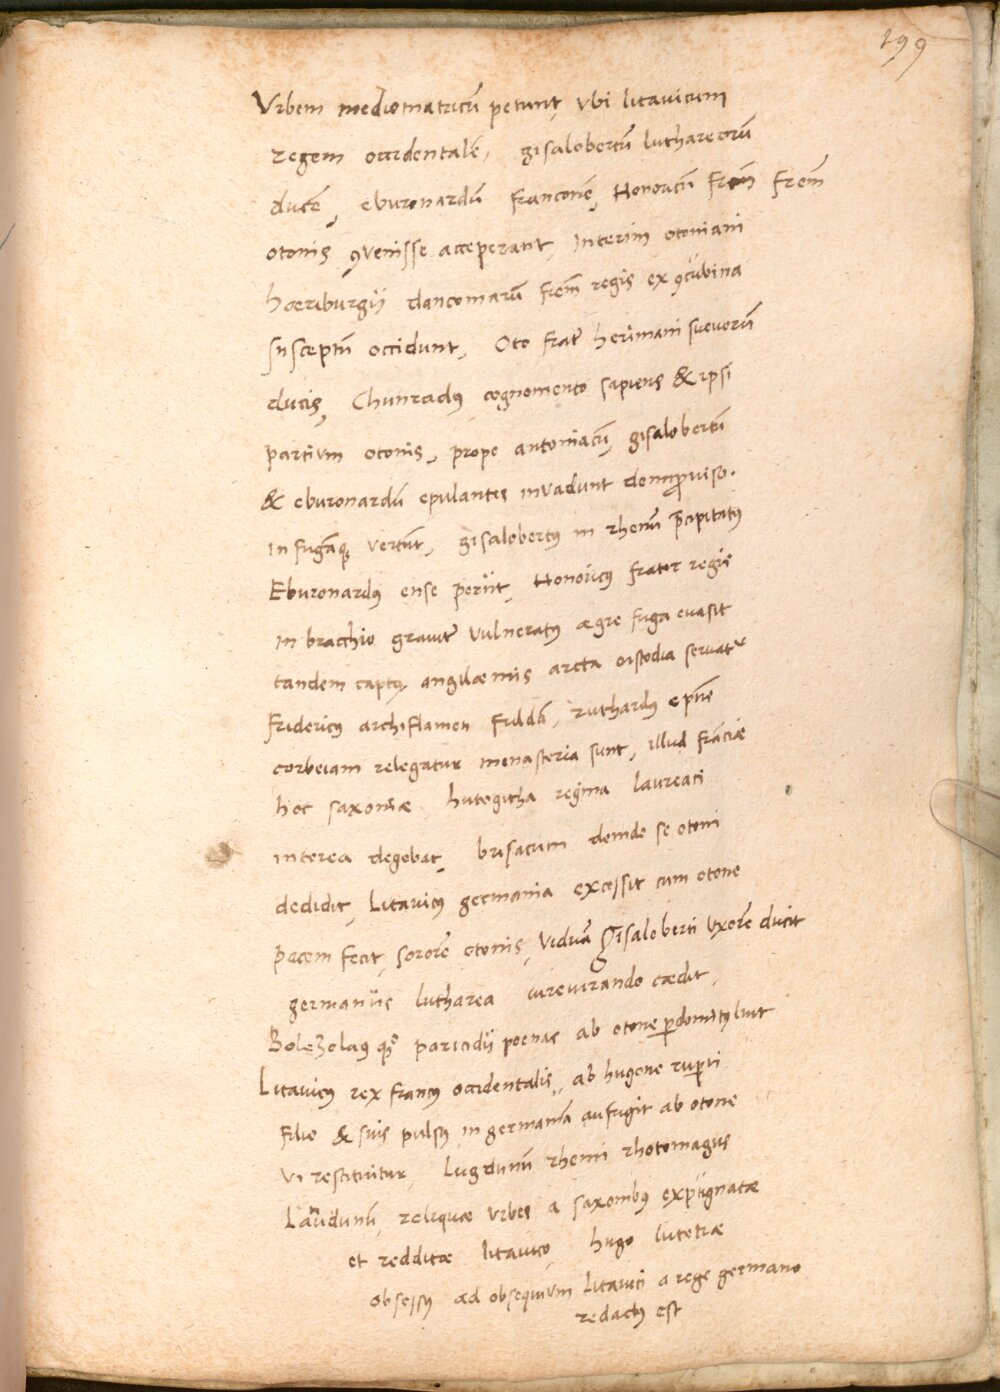 199
Vrbem mediomatricū petunt, vbi litauicum
regem occidentalē, gisalobertū luthareorū
ducē, eburonardū franconē, Honoricū frēm frēm
otonis ꝯvenisse acceperant, Interim otoniani
hoeriburgij dancomarū frēm regis ex ꝯcubina
susceptū occidunt, Oto frat̄ herimani sueuorū
ducis, Chunradꝰ cognomento sapiens & ipsi
partium otonis, prope antoniacū, gisalobertū
& eburonardū epulantes inuadunt de improuiso.
in fugāqꝫ vertūt, gisalobertꝰ in rhenū p̄cipitatꝰ
Eburonardꝰ ense periit, Honoricꝰ frater regis
in bracchio grauit̄ vulneratꝰ aegre fuga euasit
tandem captꝰ, angilaemiis arcta custodia seruatʳ
Fridericꝰ archiflamen fuldā, ruthardꝰ
corbeiam relegatur monasteria sunt, illud frāciae
hoc saxoniae hutogitha regina laureati
interea degebat, brisacum deinde se otoni
dedidit, Litauicꝰ germania excessit cum otone
pacem fecit, sororē otonis, viduā Gisaloberti vxorē ducit
germaniis lutharea iureiurando caedit,
Bolezlaus paricidij poenas ab otone ꝑdomitꝰ luit
Litauicꝰ rex francꝰ occidentalis, ab hugone ruꝑti
filio & suis pulsꝰ in germaniā aufugit ab otone
vi restituitur, Lugdunū rhemi rhotomagus
Laudunū, reliquae vrbes a saxonibꝰ expugnatae
et redditae litauico hugo lutetiae
obsessꝰ ad obsequium Litauici a rege germano
redactꝰ est